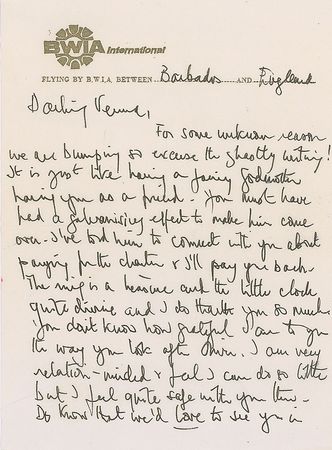 BWIA International
FLYING BY B.W.I.A. BETWEEN Barbados AND England
Darling Verna,
For some unknown reason
we are bumping so excuse the ghastly writing!
It is just like having a fairy godmother
having you as a friend - You must have
had a galvanising effect to make him come
over - I've told him to connect with you about
paying for the charter & I'll pay you back -
The mug is a heroine and the little clock
quite divine and I do thank you so much
You don't know how grateful I am to you
the way you look after them. I am very
relation-minded & feel I can do so little
but I feel quite safe with you there -
Do know that we'd love to see you in